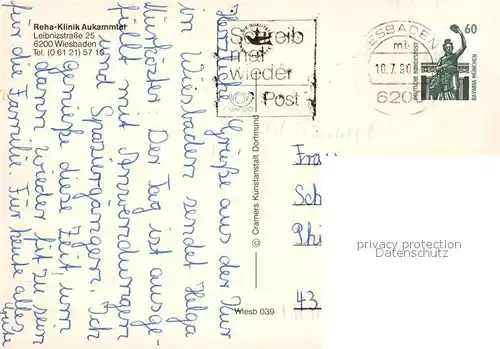 Reha-Klinik Aukammtal
Leibnizstraße 25
6200 Wiesbaden
Tel. (0 61 21) 57 18
Herzliche Grüße aus der Kur
in Wiesbaden sendet Helga
Der Tag ist ausge-
füllt mit Anwendungen
und Spaziergängen. Ich
genieße diese Zeit, um
dann wieder fit zu sein
für die Familie. Für heute alles
© Cramers Kunstanstalt Dortmund
Wiesb 039
Schreib
mal
wieder
Post
WIESBADEN
mb
10.7.90
620
60
DEUTSCHE BUNDESPOST
BAVARIA MÜNCHEN
Frau
Sch
Phi
43
privacy protection